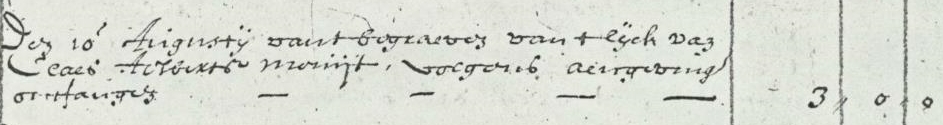 Den 10 Augustij vant begraeven van t lijck van
Claes Aelberts monijt, volgens aengeving
ontfangen — — — — 3 „ 0 „ 0